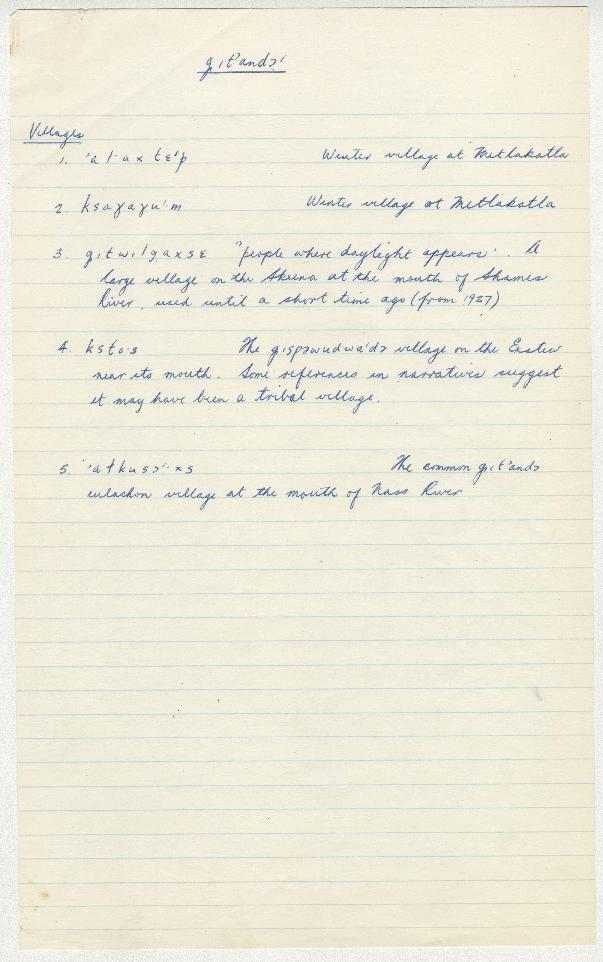 g̣ıt'andɔ'
Villages
1. 'ałaxtɛ'p Winter village at Metlakatla
2. ksaɣaɣu·m Winter village at Metlakatla
3. g̣ıtwılgaxsɛ "people where daylight appears". A
large village on the Skeena at the mouth of Shames
River, used until a short time ago (from 1927)
4. kstɔs The gıspəwudwa'də village on the Exstew
near its mouth. Some references in narratives suggest
it may have been a tribal village.
5. 'ałkusɔ'·xs The common g̣ıt'andɔ
eulachon village at the mouth of Nass River